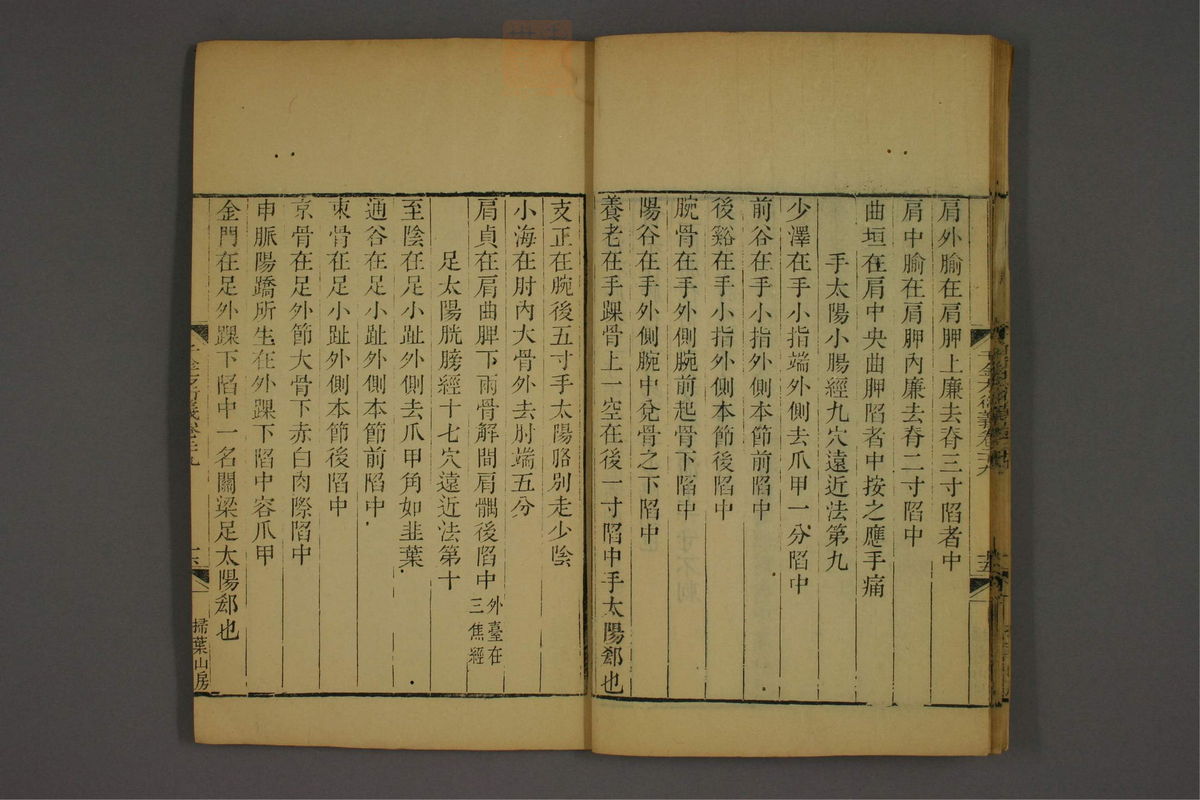 肩外腧在肩胛上廉去脊三寸陷者中
肩中腧在肩胛內廉去脊二寸陷中
曲垣在肩中央曲胛陷者中按之應手痛
手太陽小腸經九穴遠近法第九
少澤在手小指端外側去爪甲一分陷中
前谷在手小指外側本節前陷中
後谿在手小指外側本節後陷中
腕骨在手外側腕前起骨下陷中
陽谷在手外側腕中兌骨之下陷中
養老在手踝骨上一空在後一寸陷中手太陽郄也
支正在腕後五寸手太陽胳別走少陰
小海在肘內大骨外去肘端五分
肩貞在肩曲胛下兩骨解間肩髃後陷中外臺在三焦經
足太陽胱膀經十七穴遠近法第十
至陰在足小趾外側去爪甲角如韭葉
通谷在足小趾外側本節前陷中
束骨在足小趾外側本節後陷中
京骨在足外節大骨下赤白肉際陷中
申脈陽蹻所生在外踝下陷中容爪甲
金門在足外踝下陷中一名關梁足太陽郄也
掃葉山房